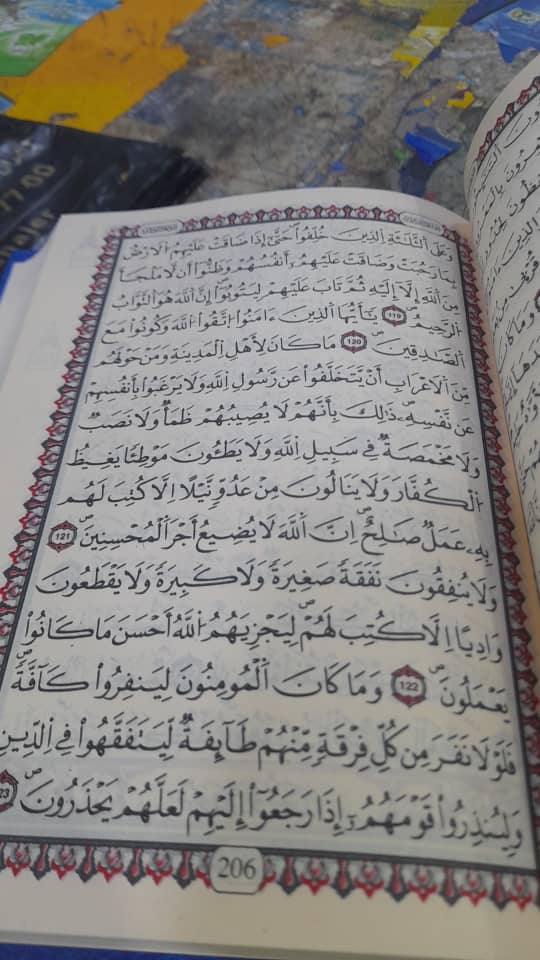 وَعَلَى اَ۬لثَّلَٰثَةِ اِ۬لذِينَ خُلِّفُواْ حَتَّىٰٓ إِذَا ضَاقَتْ عَلَيْهِمُ اُ۬لَارْضُ
بِمَا رَحُبَتْ وَضَاقَتْ عَلَيْهِمُۥٓ أَنفُسُهُمْ وَظَنُّوٓاْ أَن لَّا مَلْجَأَ
مِنَ اَ۬للَّهِ إِلَّآ إِلَيْهِ ثُمَّ تَابَ عَلَيْهِمْ لِيَتُوبُوٓاْ إِنَّ اَ۬للَّهَ هُوَ اَ۬لتَّوَّابُ
اُ۬لرَّحِيمُ 119 يَٰٓأَيُّهَا اَ۬لذِينَ ءَامَنُواْ اُ۪تَّقُواْ اُ۬للَّهَ وَكُونُواْ مَعَ
اَ۬لصَّٰدِقِينَ 120 مَا كَانَ لِأَهْلِ اِ۬لْمَدِينَةِ وَمَنْ حَوْلَهُم
مِّنَ اَ۬لَاعْرَابِ أَنْ يَّتَخَلَّفُواْ عَن رَّسُولِ اِ۬للَّهِ وَلَا يَرْغَبُواْ بِأَنفُسِهِمْ
عَن نَّفْسِهِۦ ذَٰلِكَ بِأَنَّهُمْ لَا يُصِيبُهُمْ ظَمَأٌ وَلَا نَصَبٌ
وَلَا مَخْمَصَةٌ فِي سَبِيلِ اِ۬للَّهِ وَلَا يَطَـُٔونَ مَوْطِئًا يَغِيظُ
اُ۬لْكُفَّارَ وَلَا يَنَالُونَ مِنْ عَدُوٍّ نَّيْلًا اِلَّا كُتِبَ لَهُم
بِهِۦ عَمَلٌ صَٰلِحٌ اِنَّ اَ۬للَّهَ لَا يُضِيعُ أَجْرَ اَ۬لْمُحْسِنِينَ 121
وَلَا يُنفِقُونَ نَفَقَةً صَغِيرَةً وَلَا كَبِيرَةً وَلَا يَقْطَعُونَ
وَادِيًا اِلَّا كُتِبَ لَهُمْ لِيَجْزِيَهُمُ اُ۬للَّهُ أَحْسَنَ مَا كَانُواْ
يَعْمَلُونَ 122 وَمَا كَانَ اَ۬لْمُومِنُونَ لِيَنفِرُواْ كَآفَّةً
فَلَوْلَا نَفَرَ مِن كُلِّ فِرْقَةٍ مِّنْهُمْ طَآئِفَةٌ لِّيَتَفَقَّهُواْ فِي اِ۬لدِّينِ
وَلِيُنذِرُواْ قَوْمَهُمُۥٓ إِذَا رَجَعُوٓاْ إِلَيْهِمْ لَعَلَّهُمْ يَحْذَرُونَ 23
206